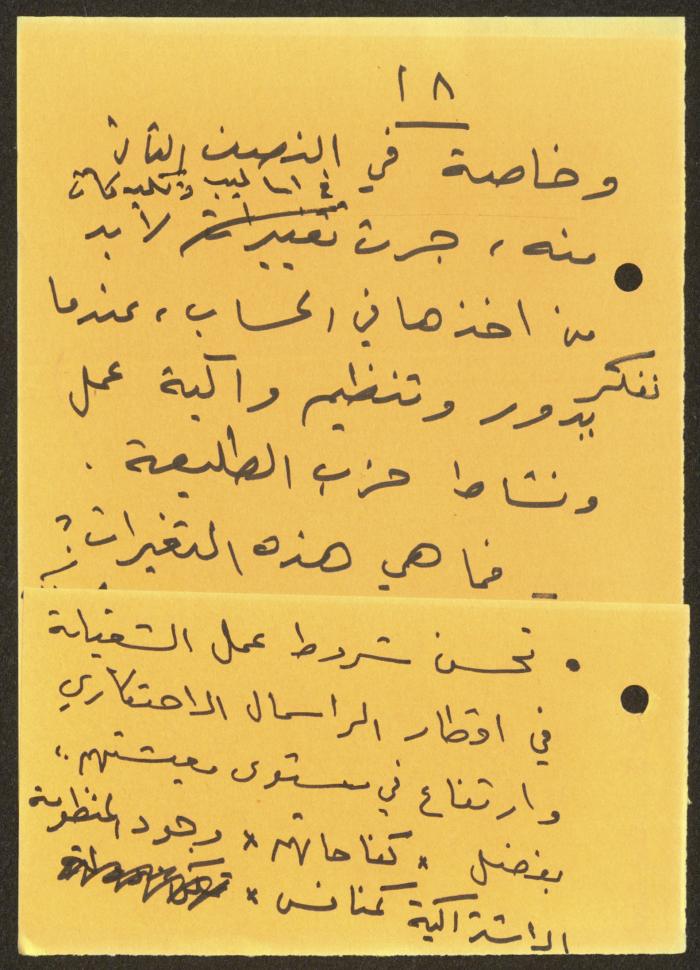 ١٨
وخاصة في النصف الثاني
في اساليب وتكتيكات
منه، جرت تغييرات لابد
من اخذها في الحساب، عندما
نفكر
بدور وتنظيم وآلية عمل
ونشاط حزب الطليعة.
_ فما هي هذه التغيرات؟
• تحسن شروط عمل الشغيلة
في اقطار الراسمال الاحتكاري
وارتفاع في مستوى معيشتهم،
بفضل * كفاحاتهم * وجود المنظومة
الاشتراكية كمنافس *